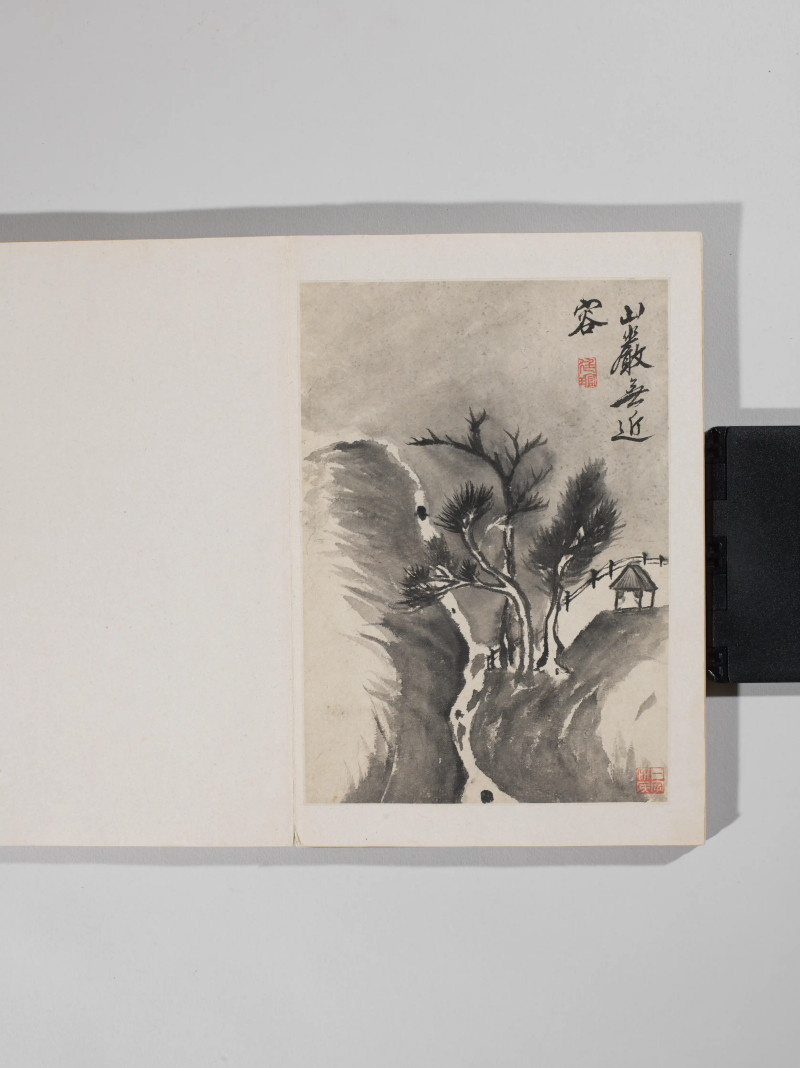 山巖無近
容